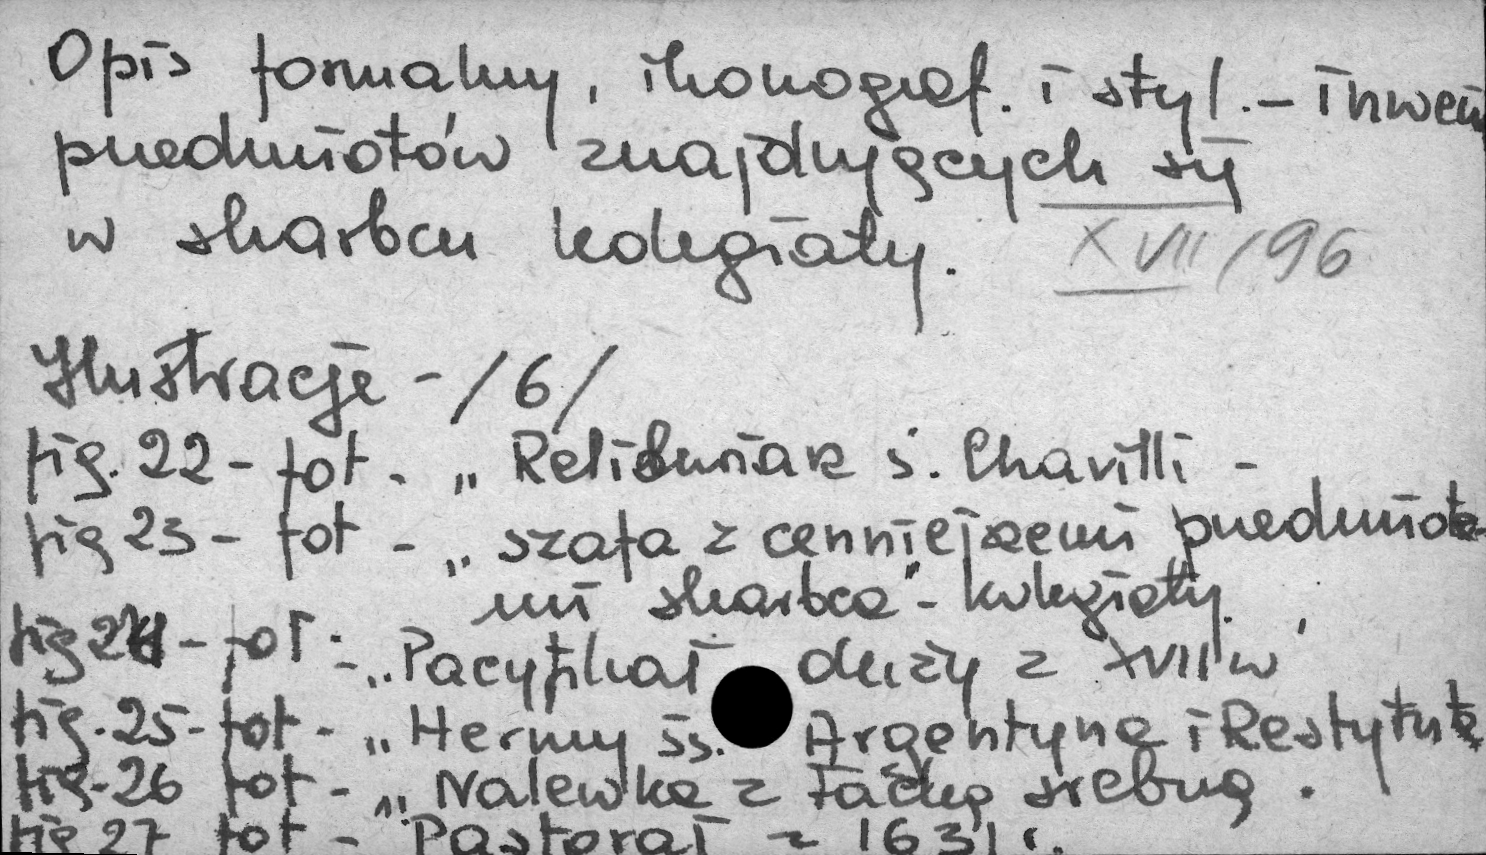 Opis formalny, ikonograf. i styl. – inwen
przedmiotów znajdujących się
w skarbcu kolegiaty. XVII/96
Ilustracje – /6/
fig. 22 – fot. „Relikwiarz ś.
fig 23 – fot – „szafa z cenniejszemi przedmiota
mi skarbca" – kolegiaty.
fig 24 – fot – „Pacyfikał duży z XVII w
fig. 25 – fot – „Hermy śś. Argentyna i Restytuta
fig. 26 fot – „Nalewka z tacką srebrną.
fig 27 fot – "Pastorał z 1631 r.